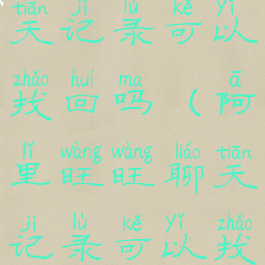 tiān jì lù kě yǐ
天记录可以
zhǎo huí ma ā
找回吗(阿
lǐ wàng wàng liáo tiān
里旺旺聊天
jì lù kě yǐ zhǎo
记录可以找